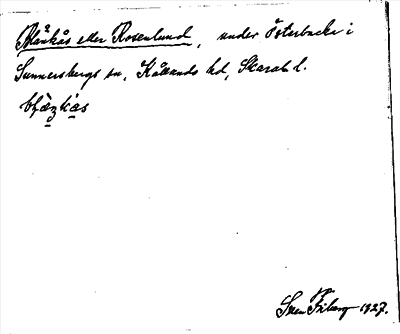 Blankås eller Rosenlund, under Österbacke i
Sunnersbergs sn, Kållands hd, Skarab. l.
Sven Friberg 1927.